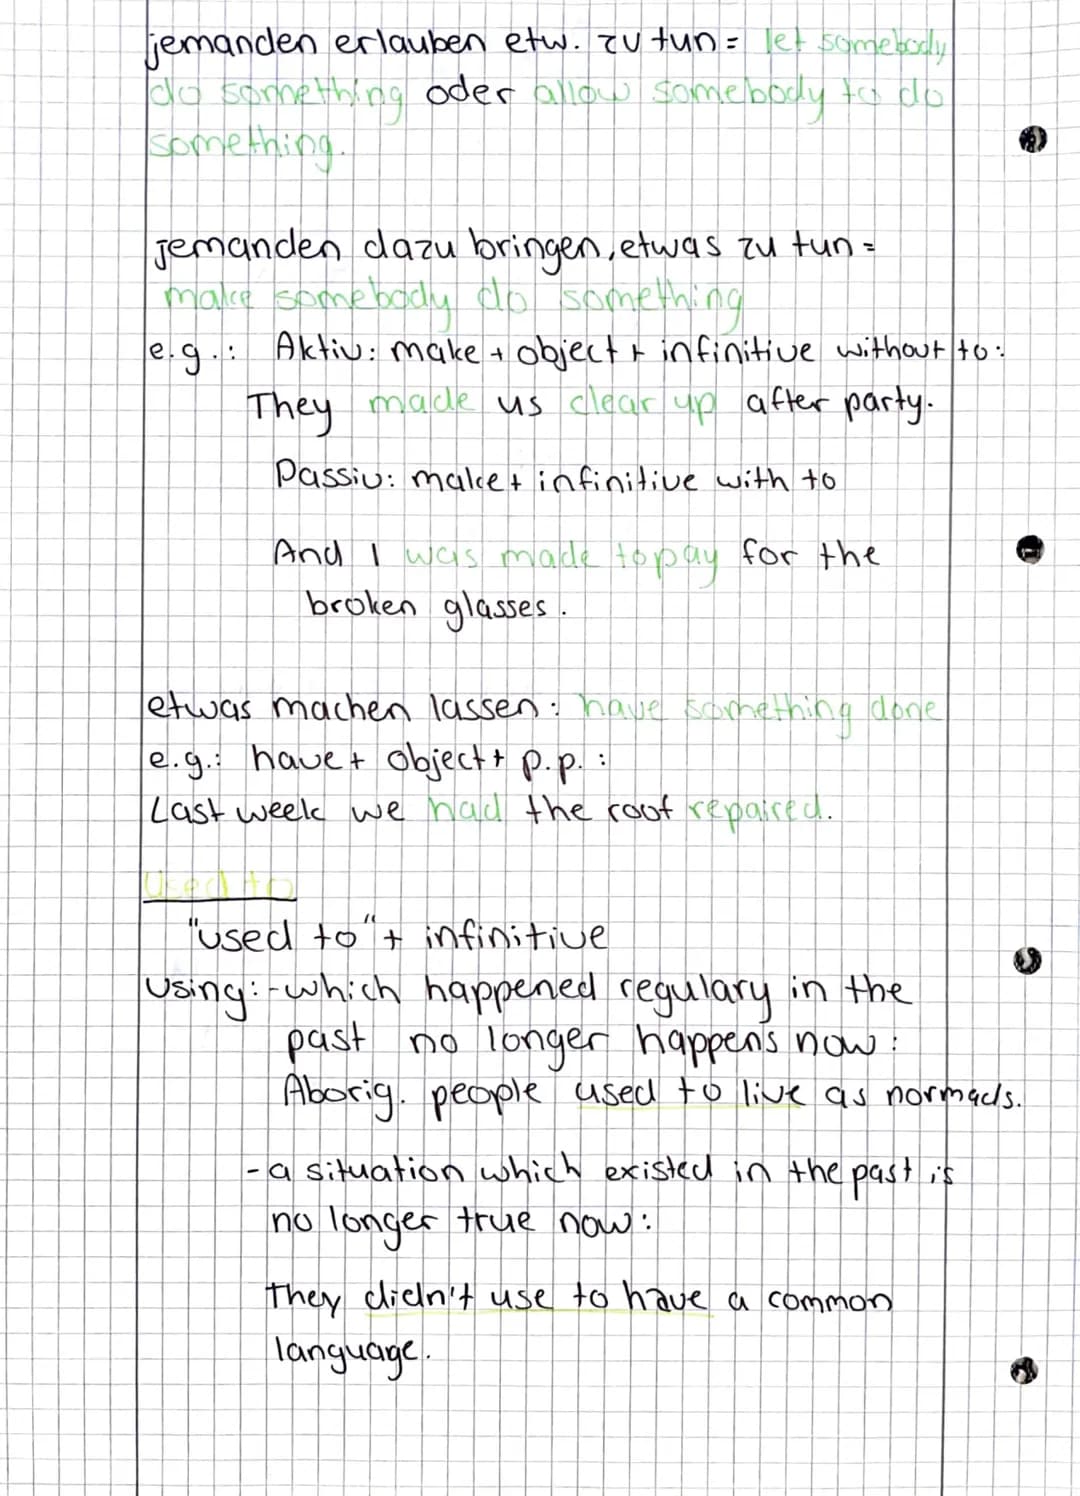 jemanden erlauben etw. zu tun = let somebody
do something oder allow somebody to do
something.
jemanden dazu bringen, etwas zu tun =
make somebody do something
e.g.: Aktiv: make + object + infinitive without to:
They made us clear up after party.
Passiv: make + infinitive with to
And I was made to pay for the
broken glasses.
etwas machen lassen: have something done
e.g.: have + object + p.p.:
Last week we had the roof repaired.
Used to
"used to" + infinitive
Using: - which happened regulary in the
past no longer happens now:
Aborig. people used to live as normads.
- a situation which existed in the past is
no longer true now:
They didn't use to have a common
language.